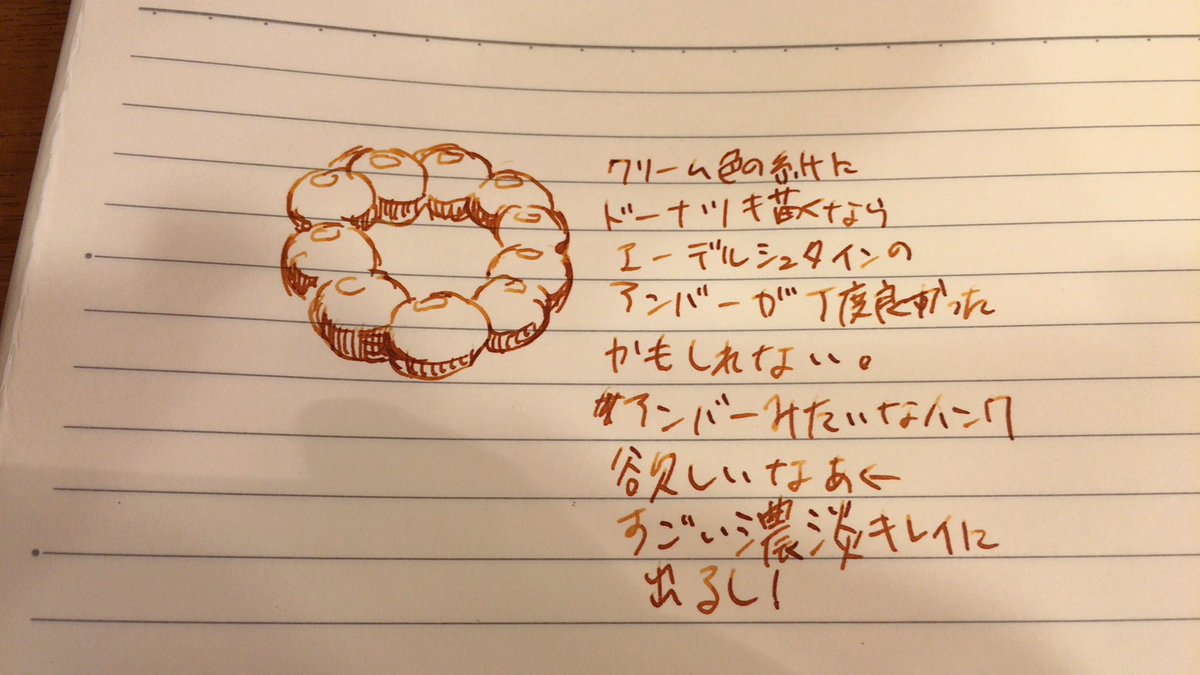 クリーム色の紙に
ドーナツを描くなら
エーデルシュタインの
アンバーが丁度良かった
かもしれない。
アンバーみたいなインク
欲しいなあ←
すごい濃淡キレイに
出るし!